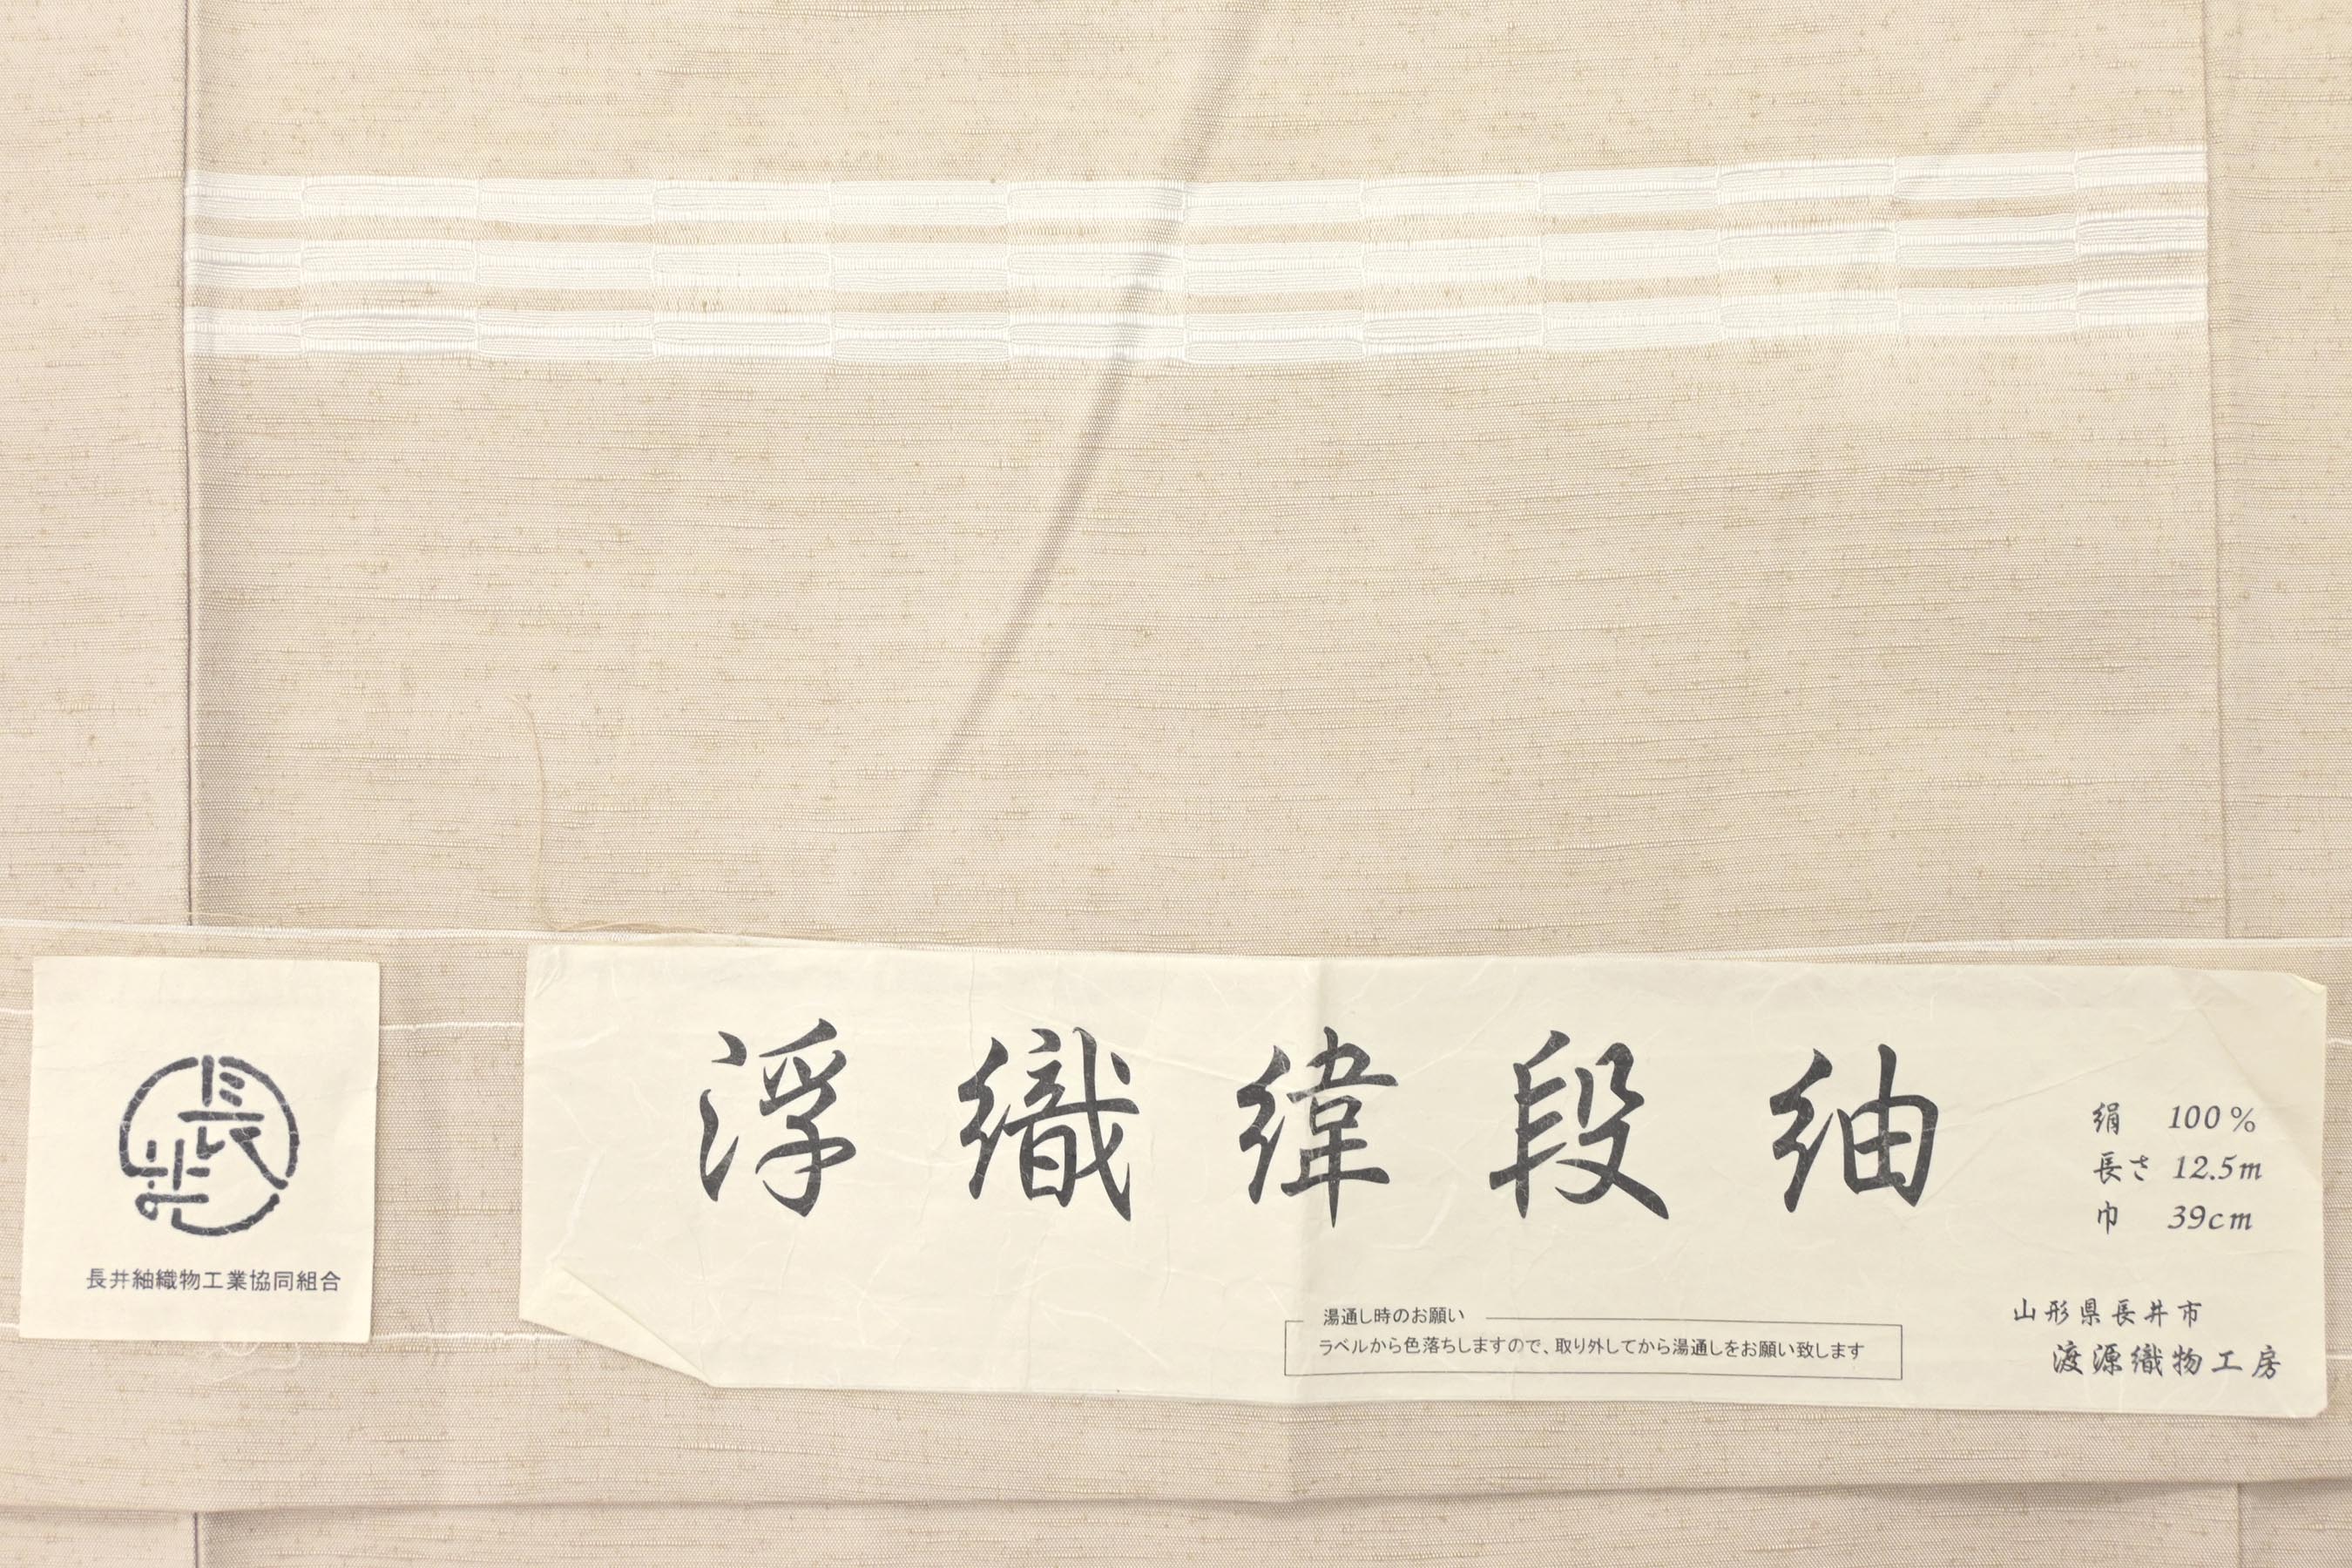 長井
長井紬織物工業協同組合
浮織緯段紬
絹 100%
長さ 12.5m
巾 39cm
湯通し時のお願い
ラベルから色落ちしますので、取り外してから湯通しをお願い致します
山形県長井市
渡源織物工房